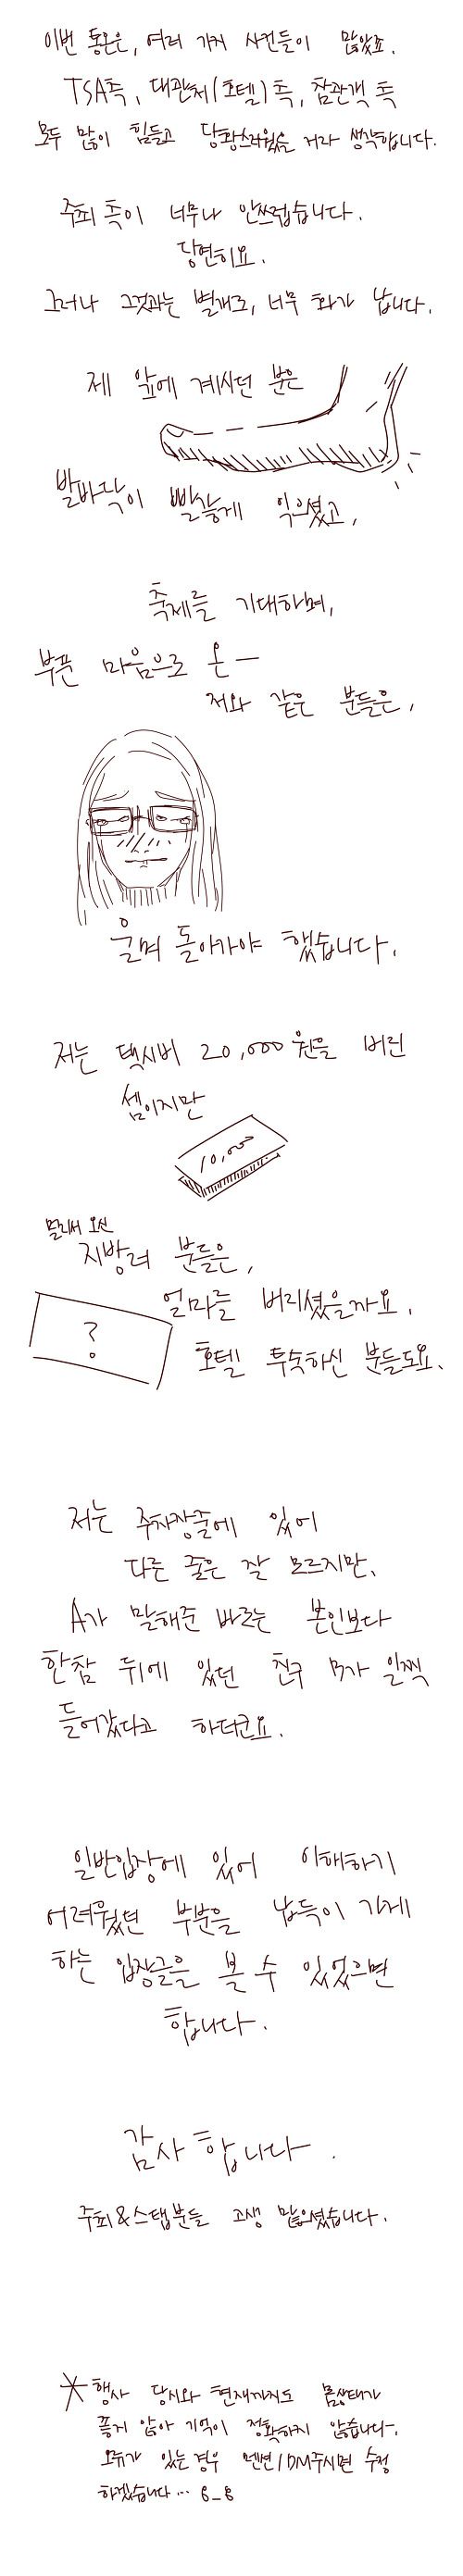 이번 통온은, 여러 가지 사건들이 많았죠.
TSA측, 대관처(호텔)측, 참관객 측
모두 많이 힘들고 당황스러웠을 거라 생각합니다.
주최 측이 너무나 안쓰럽습니다.
당연히요.
그러나 그것과는 별개로, 너무 화가 납니다.
제 앞에 계시던 분은
발바닥이 빨갛게 익으셨고,
축제를 기대하며,
부푼 마음으로 온 —
저와 같은 분들은,
울며 돌아가야 했습니다.
저는 택시비 20,000원을 버린
셈이지만
10,000
멀리서 오신
지방러 분들은,
얼마를 버리셨을까요.
?
호텔 투숙하신 분들도요.
저는 주차장줄에 있어
다른 줄은 잘 모르지만,
A가 말해준 바로는 본인보다
한참 뒤에 있던 친구 B가 일찍
들어갔다고 하더군요.
일반입장에 있어 이해하기
어려웠던 부분을 납득이 가게
하는 입장글을 볼 수 있었으면
합니다.
감사합니다.
주최&스탭분들 고생 많으셨습니다.
* 행사 당시와 현재까지도 몸상태가
좋지 않아 기억이 정확하지 않습니다.
오류가 있는 경우 멘션/DM주시면 수정
하겠습니다... ϛ_ϛ